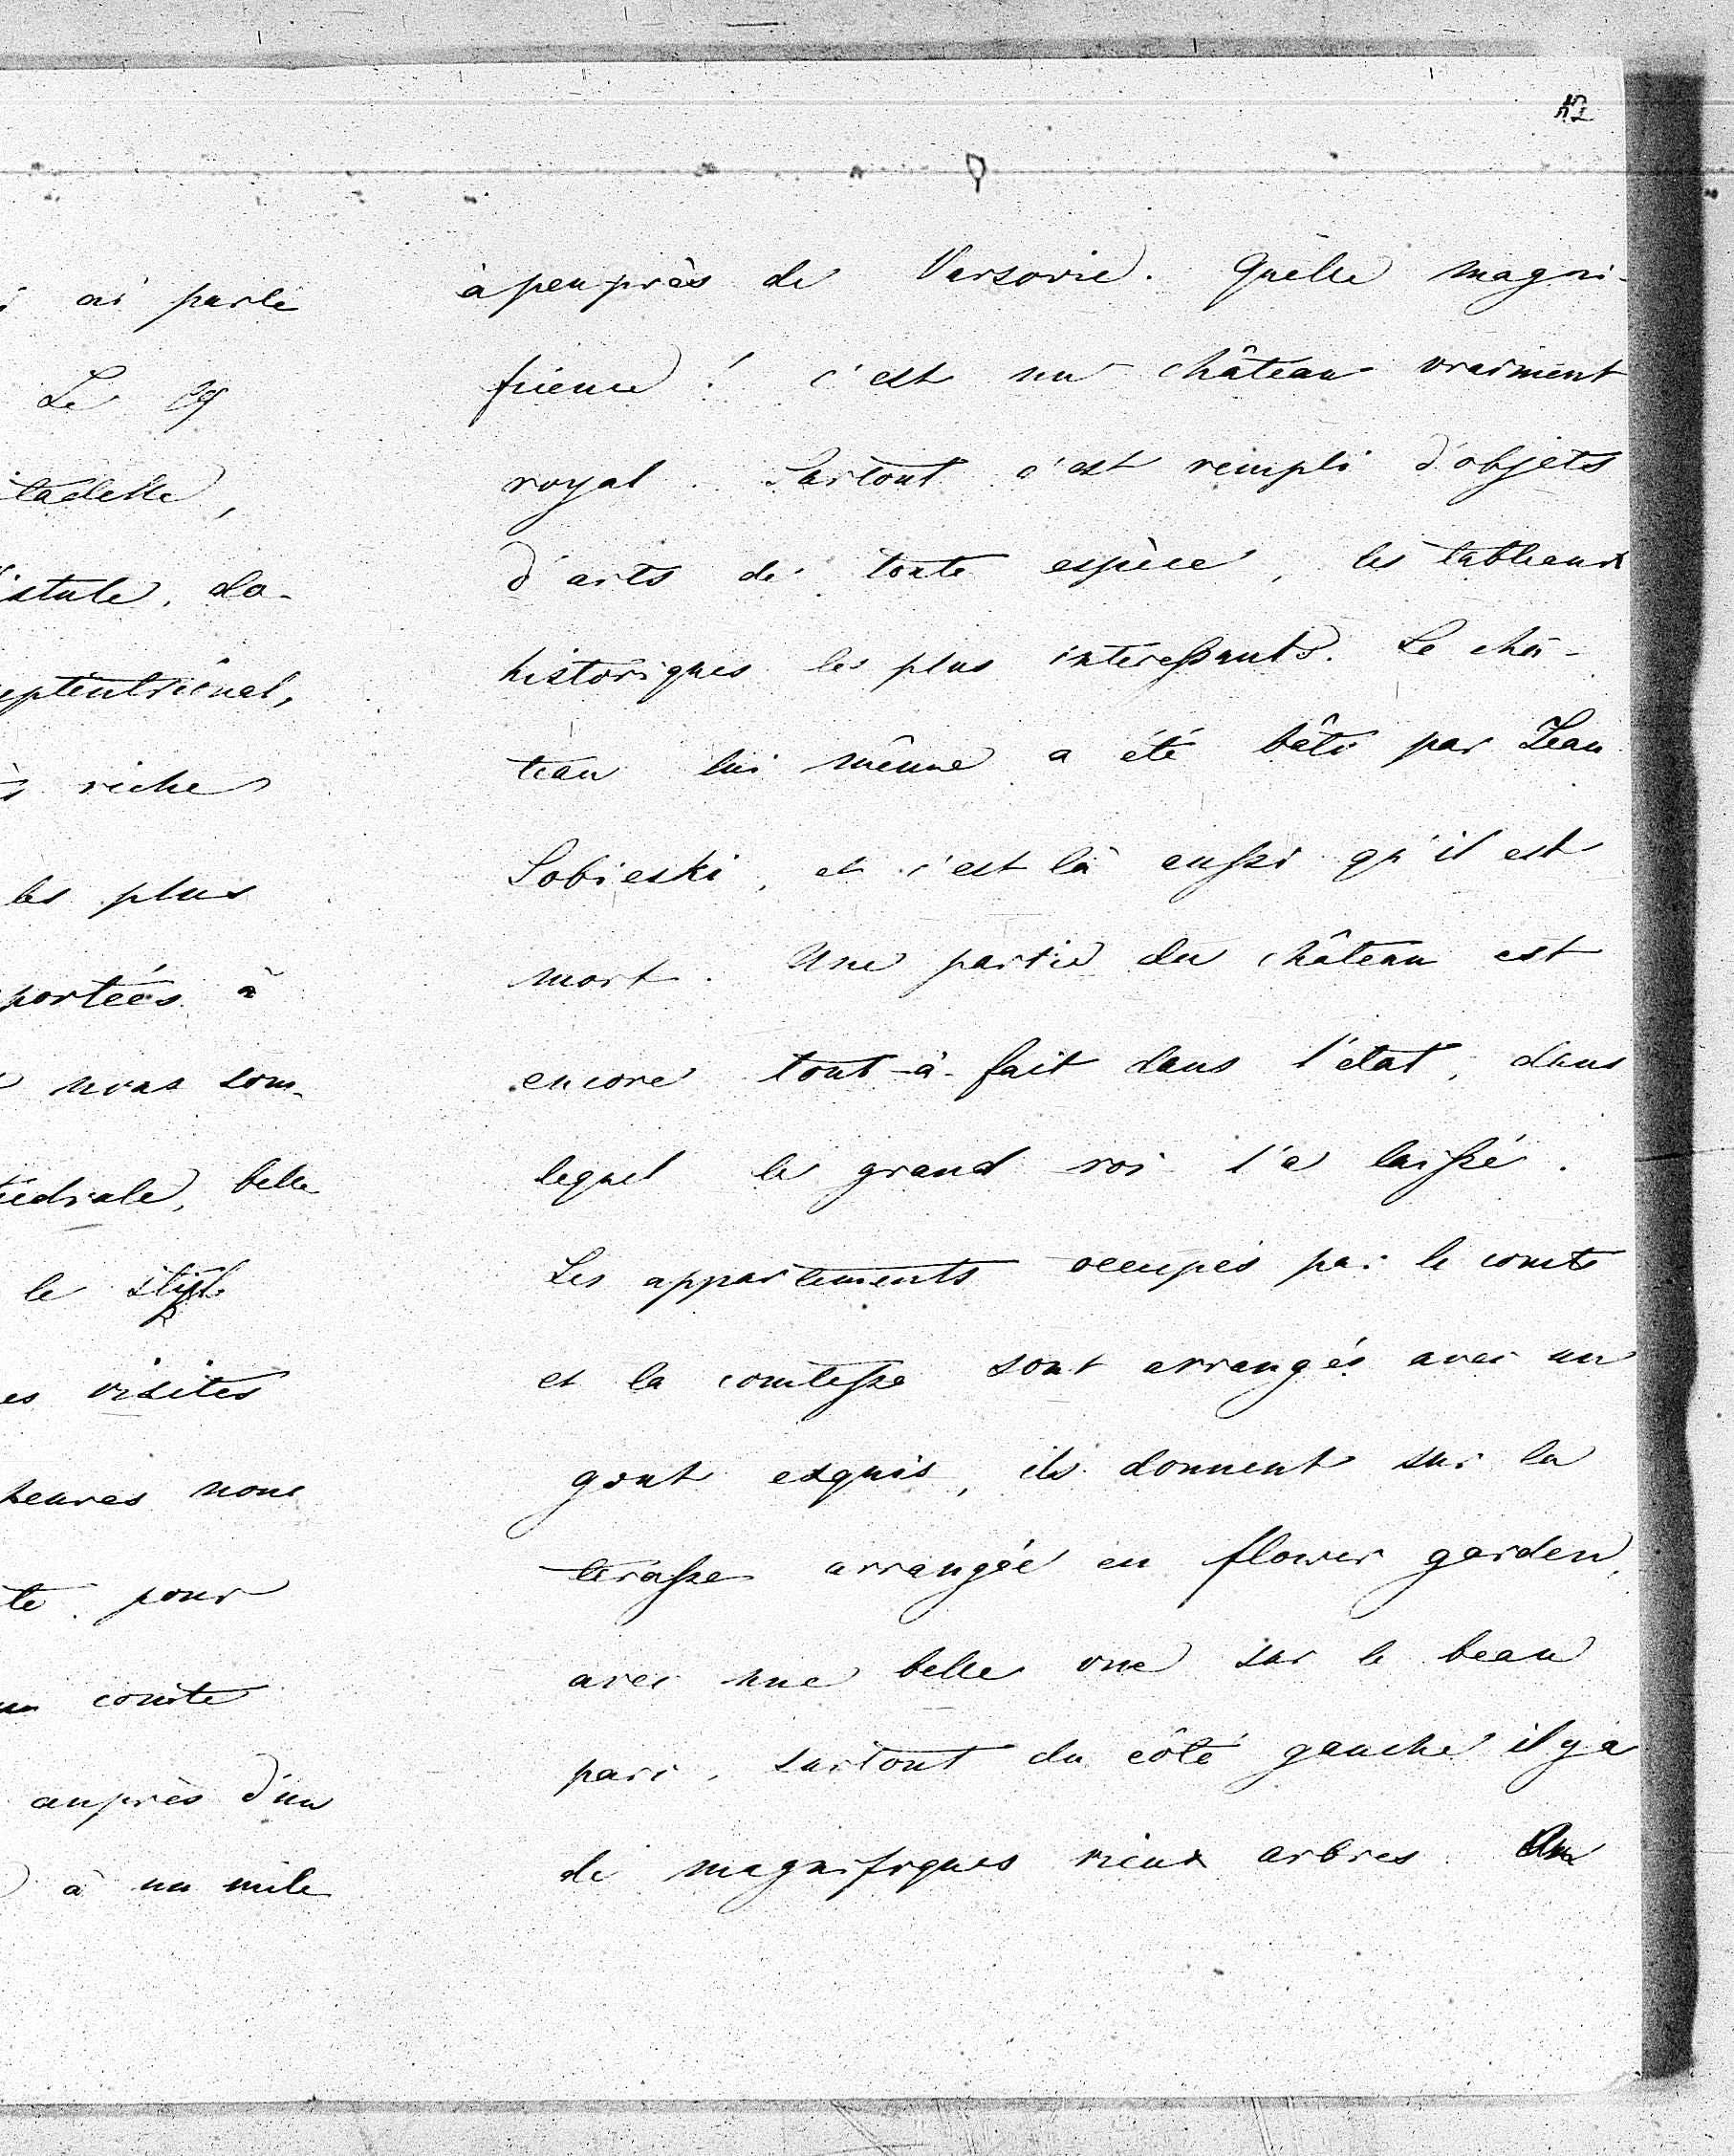 ai parlé
Le 29
tadelle,
istule, do-
eptentrional,
riche
les plus
portées à
nous som-
tédrale, belle
le style
es visites
heures nous
te pour
comte
auprès d'un
à un mile
à peu près de Varsovie. Quelle magni-
ficence! c'est un château vraiment
royal. Partout c'est rempli d'objets
d'arts de toute espèce, les tableaux
historiques les plus interessants. Le châ-
teau lui même a été bâti par Jean
Sobieski, et c'est là aussi qu'il est
mort. Une partie du château est
encore tout-à-fait dans l'état, dans
lequel le grand roi l'a laissé.
Les appartements occupés par le comte
et la comtesse sont arrangés avec un
gout exquis, ils donnent sur la
terasse arrangée en flower garden,
avec une belle vue sur le beau
parc, surtout du côté gauche il y a
de magnifiques vieux arbres.